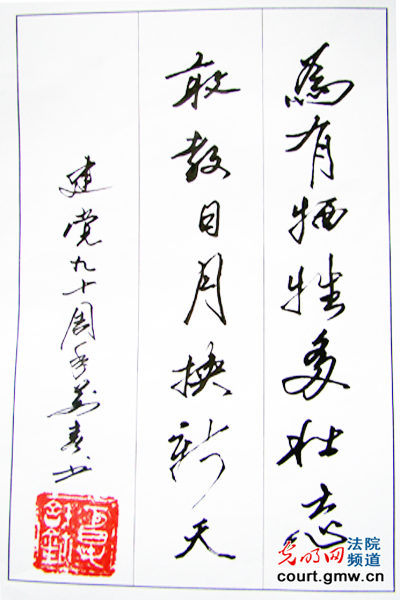 為有牺牲多壮志
敢教日月换新天
建党九十周年 书
光明网
法院
频道
court.gmw.cn